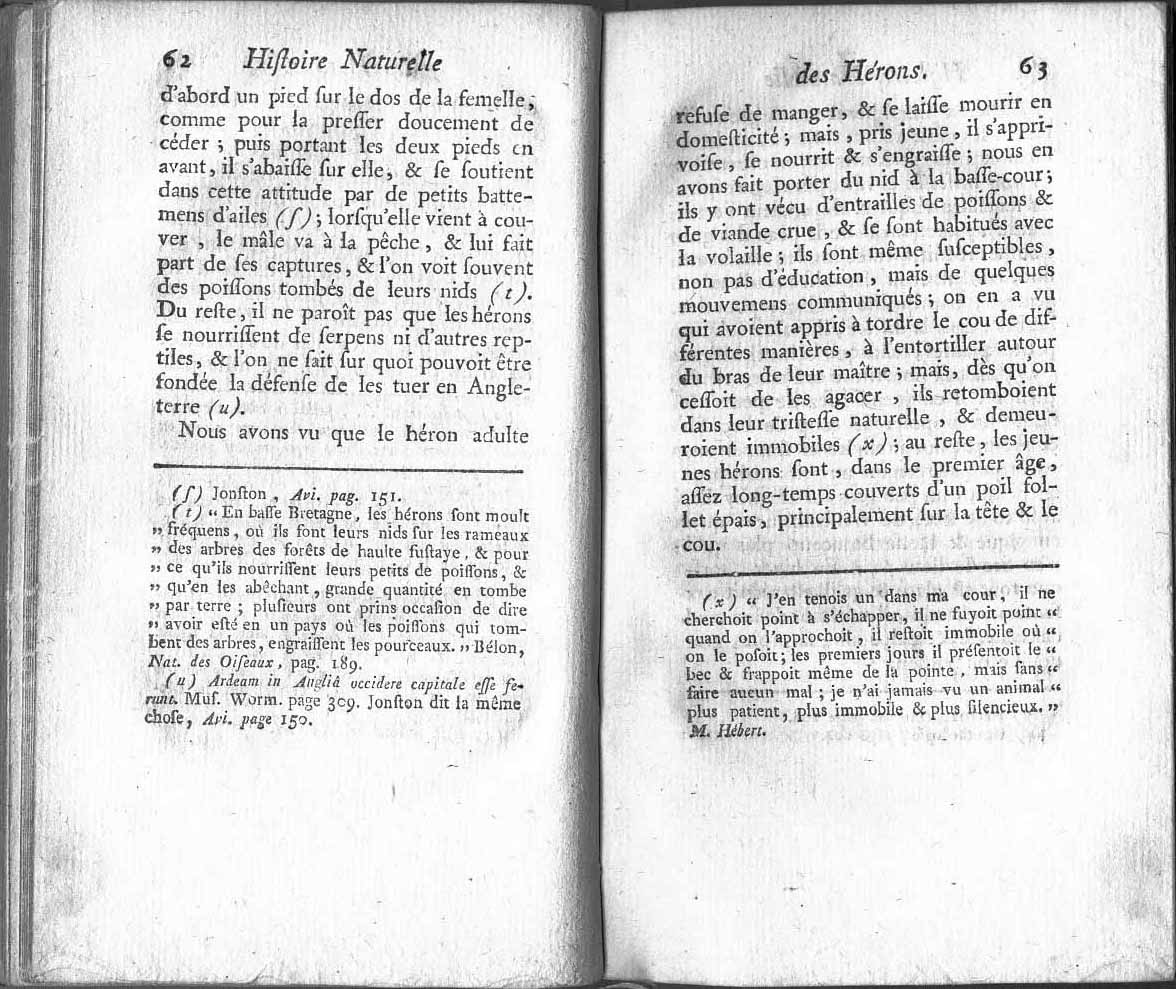 62 Hiſtoire Naturelle
d'abord un pied ſur le dos de la femelle,
comme pour la preſſer doucement de
céder ; puis portant les deux pieds en
avant, il s'abaiſſe ſur elle, & ſe ſoutient
dans cette attitude par de petits batte-
mens d'ailes (ſ) ; lorſqu'elle vient à cou-
ver , le mâle va à la pêche , & lui fait
part de ſes captures, & l'on voit ſouvent
des poiſſons tombés de leurs nids (t).
Du reſte, il ne paroît pas que les hérons
ſe nourriſſent de ſerpens ni d'autres rep-
tiles, & l'on ne ſait ſur quoi pouvoit être
fondée la défenſe de les tuer en Angle-
terre (u).
Nous avons vu que le héron adulte
(ſ) Jonſton , Avi. pag. 151.
(t) « En baſſe Bretagne, les hérons ſont moult
» fréquens, où ils font leurs nids ſur les rameaux
» des arbres des forêts de haulte fuſtaye , & pour
» ce qu'ils nourriſſent leurs petits de poiſſons, &
» qu'en les abêchant, grande quantité en tombe
» par terre ; pluſieurs ont prins occaſion de dire
» avoir eſté en un pays où les poiſſons qui tom-
bent des arbres, engraiſſent les pourceaux. » Bélon,
Nat. des Oiſeaux, pag. 189.
(u) Ardeam in Angliâ occidere capitale eſſe fe-
runt. Muſ. Worm. page 309. Jonſton dit la même
choſe, Avi. page 150.
des Hérons. 63
refuſe de manger, & ſe laiſſe mourir en
domeſticité ; mais , pris jeune , il s'appri-
voiſe , ſe nourrit & s'engraiſſe ; nous en
avons fait porter du nid à la baſſe-cour ;
ils y ont vécu d'entrailles de poiſſons &
de viande crue , & ſe ſont habitués avec
la volaille ; ils ſont même ſuſceptibles ,
non pas d'éducation , mais de quelques
mouvemens communiqués ; on en a vu
qui avoient appris à tordre le cou de dif-
férentes manières , à l'entortiller autour
du bras de leur maître ; mais, dès qu'on
ceſſoit de les agacer , ils retomboient
dans leur triſteſſe naturelle , & demeu-
roient immobiles (x) ; au reſte , les jeu-
nes hérons ſont , dans le premier âge,
aſſez long-temps couverts d'un poil fol-
let épais, principalement ſur la tête & le
cou.
(x) « J'en tenois un dans ma cour, il ne
cherchoit point à s'échapper, il ne fuyoit point «
quand on l'approchoit , il reſtoit immobile où «
on le poſoit ; les premiers jours il préſentoit le «
bec & frappoit même de la pointe , mais ſans «
faire aucun mal ; je n'ai jamais vu un animal «
plus patient, plus immobile & plus ſilencieux. »
M. Hébert.